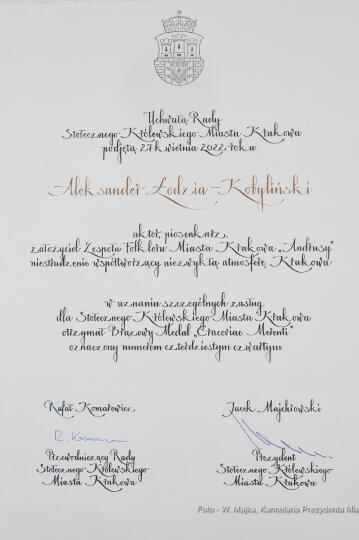 Uchwałą Rady
Stołecznego Królewskiego Miasta Krakowa
podjętą 27 kwietnia 2022 roku
Aleksander Łodzia-Kobyliński
aktor, piosenkarz,
założyciel Zespołu Folkloru Miasta Krakowa „Andrusy”
niestrudzenie współtworzący niezwykłą atmosferę Krakowa
w uznaniu szczególnych zasług
dla Stołecznego Królewskiego Miasta Krakowa
otrzymał Brązowy Medal „Cracoviae Merenti”
oznaczony numerem czterdziestym czwartym
Rafał Komarewicz Jacek Majchrowski
R. Komarewicz
Przewodniczący Rady Prezydent
Stołecznego Królewskiego Stołecznego Królewskiego
Miasta Krakowa Miasta Krakowa
Foto - W. Majka, Kancelaria Prezydenta Mia